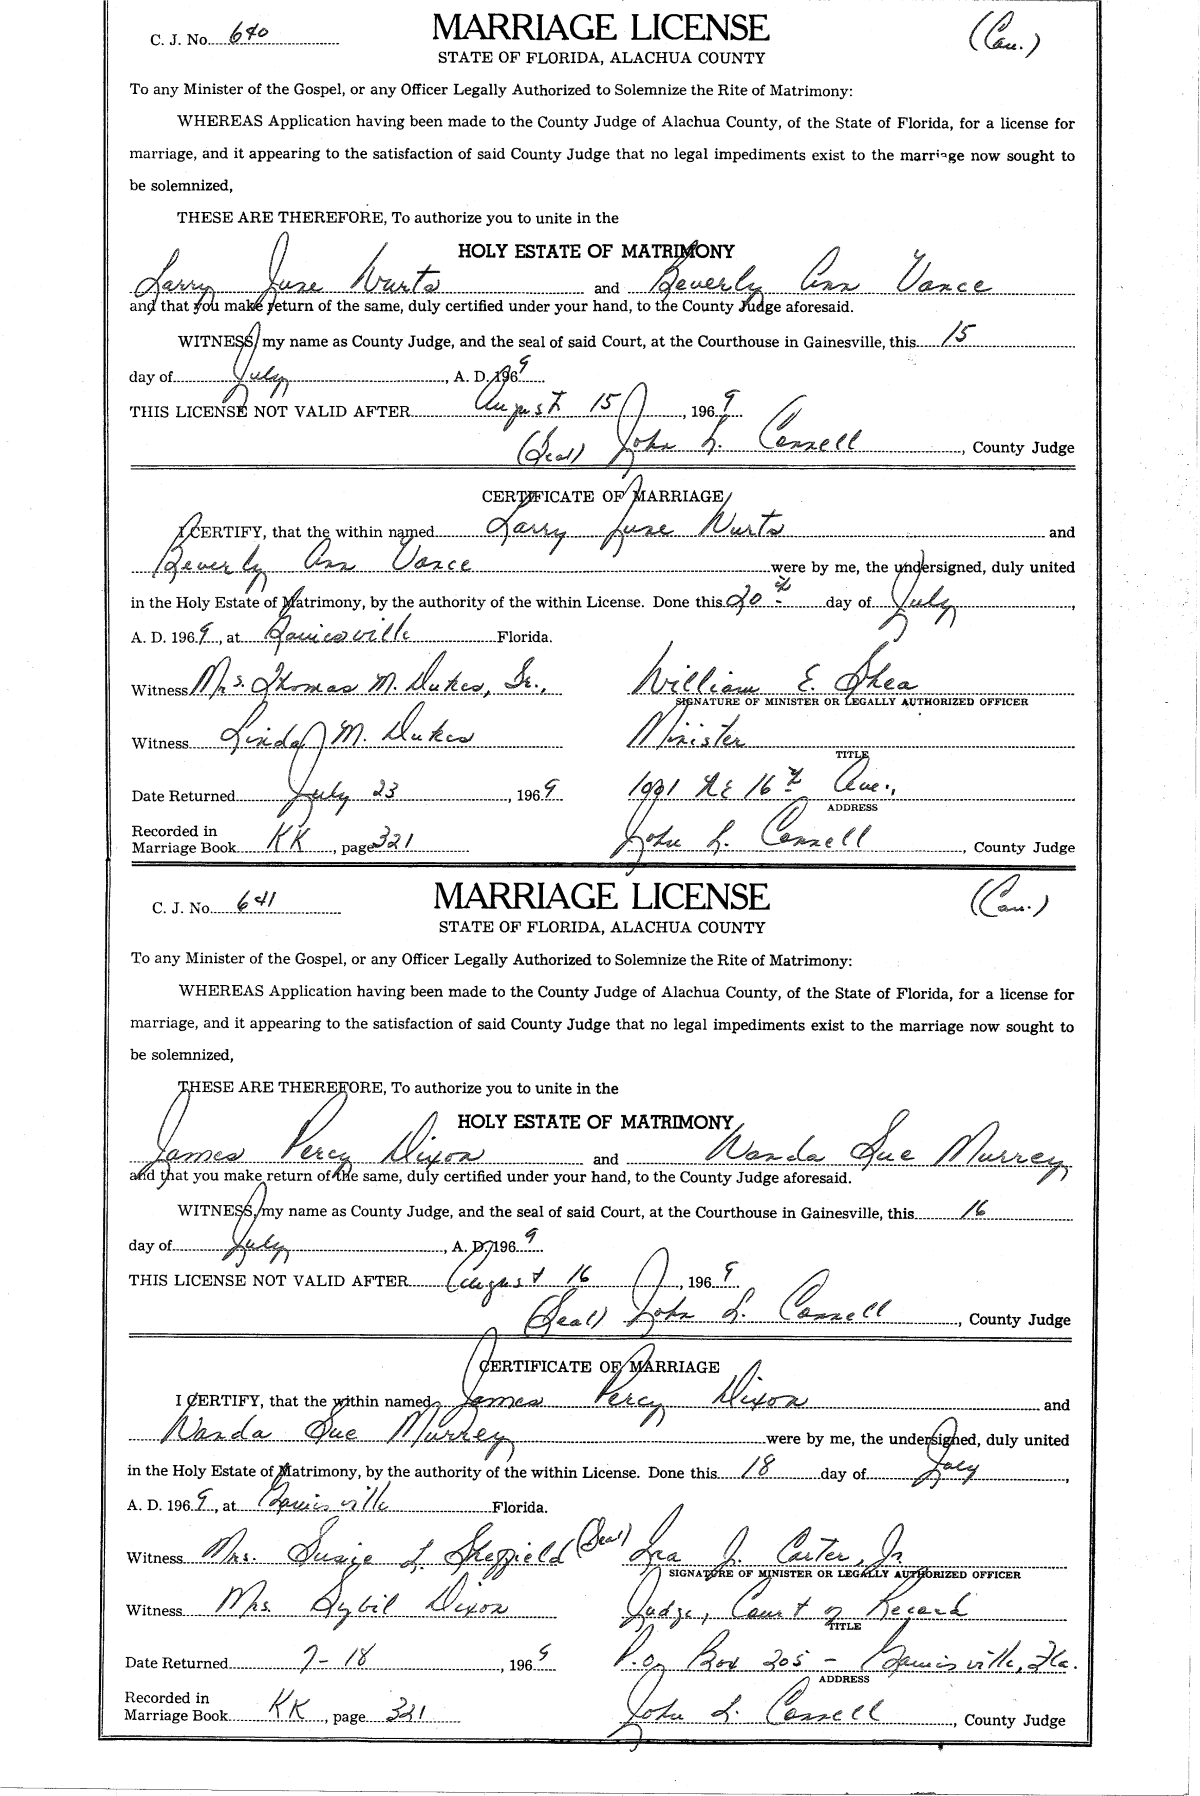 C. J. No. 640
MARRIAGE LICENSE
(Cau.)
STATE OF FLORIDA, ALACHUA COUNTY
To any Minister of the Gospel, or any Officer Legally Authorized to Solemnize the Rite of Matrimony:
WHEREAS Application having been made to the County Judge of Alachua County, of the State of Florida, for a license for
marriage, and it appearing to the satisfaction of said County Judge that no legal impediments exist to the marriage now sought to
be solemnized,
THESE ARE THEREFORE, To authorize you to unite in the
HOLY ESTATE OF MATRIMONY
Larry June Wurts and Beverly Ann Vance
and that you make return of the same, duly certified under your hand, to the County Judge aforesaid.
WITNESS, my name as County Judge, and the seal of said Court, at the Courthouse in Gainesville, this 15
day of July, A. D. 1969
THIS LICENSE NOT VALID AFTER August 15, 1969
(Seal) John L. Connell, County Judge
CERTIFICATE OF MARRIAGE
I CERTIFY, that the within named Larry June Wurts and
Beverly Ann Vance were by me, the undersigned, duly united
in the Holy Estate of Matrimony, by the authority of the within License. Done this 20th day of July,
A. D. 1969, at Gainesville Florida.
Witness Mrs. Thomas M. Dukes, Sr., William E. Shea
SIGNATURE OF MINISTER OR LEGALLY AUTHORIZED OFFICER
Witness Linda M. Dukes Minister
TITLE
Date Returned July 23, 1969 1001 NE 16th Ave.,
ADDRESS
Recorded in
Marriage Book KK, page 321 John L. Connell, County Judge
C. J. No. 641
MARRIAGE LICENSE
(Cau.)
STATE OF FLORIDA, ALACHUA COUNTY
To any Minister of the Gospel, or any Officer Legally Authorized to Solemnize the Rite of Matrimony:
WHEREAS Application having been made to the County Judge of Alachua County, of the State of Florida, for a license for
marriage, and it appearing to the satisfaction of said County Judge that no legal impediments exist to the marriage now sought to
be solemnized,
THESE ARE THEREFORE, To authorize you to unite in the
HOLY ESTATE OF MATRIMONY
James Percy Dixon and Wanda Sue Murrey
and that you make return of the same, duly certified under your hand, to the County Judge aforesaid.
WITNESS, my name as County Judge, and the seal of said Court, at the Courthouse in Gainesville, this 16
day of July, A. D. 1969
THIS LICENSE NOT VALID AFTER August 16, 1969
(Seal) John L. Connell, County Judge
CERTIFICATE OF MARRIAGE
I CERTIFY, that the within named James Percy Dixon and
Wanda Sue Murrey were by me, the undersigned, duly united
in the Holy Estate of Matrimony, by the authority of the within License. Done this 18 day of July,
A. D. 1969, at Gainesville Florida.
Witness Mrs. Susie L. Sheffield (Seal) Ira J. Carter, Jr.
SIGNATURE OF MINISTER OR LEGALLY AUTHORIZED OFFICER
Witness Mrs. Sybil Dixon Judge, Court of Record
TITLE
Date Returned 7-18, 1969 P.O. Box 205 - Gainesville, Fla.
ADDRESS
Recorded in
Marriage Book KK, page 321 John L. Connell, County Judge